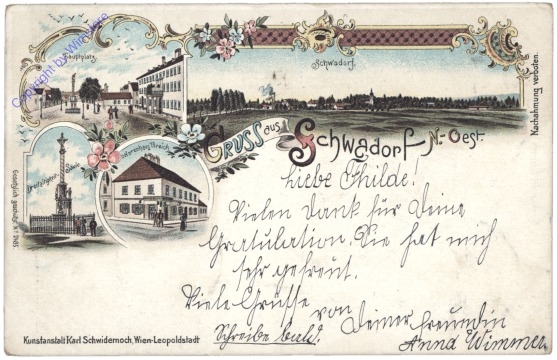 Copyright by Wimmer
Hauptplatz
Schwadorf.
Nachahmung verboten.
Gruss aus Schwadorf N.-Oest.
Dreifaltigkeits
Säule
Gesetzlich geschützt No 7485.
Liebe Thilde!
Vielen Dank für Deine
Gratulation. Sie hat mich
sehr gefreut.
Viele Grüsse von Deiner Freundin
Schreibe bald.
Anna Wimmer
Kunstanstalt Karl Schwidernoch, Wien-Leopoldstadt